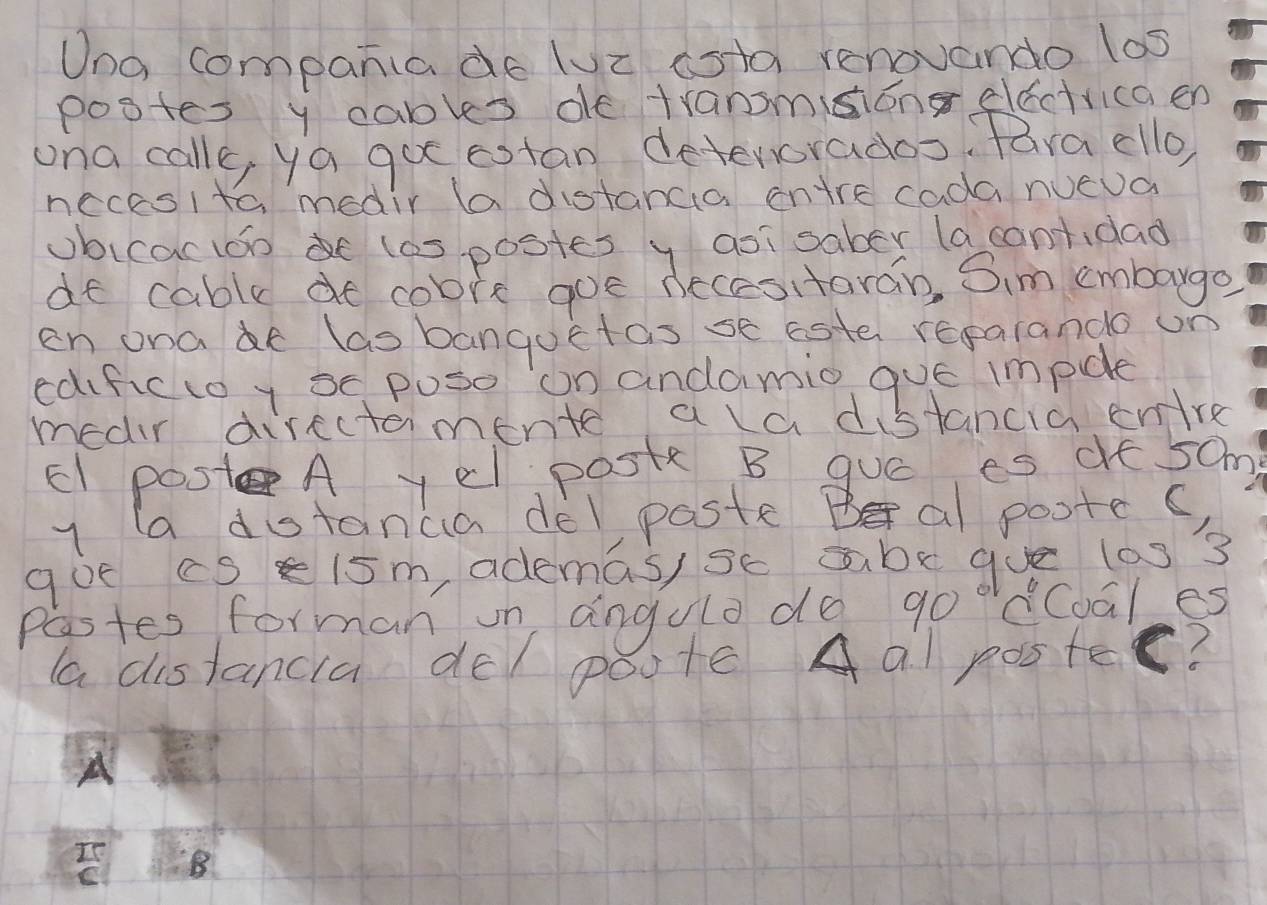 Una compañia de luz esta renovando los
postes y cables de transmisión eléctrica en
una calle, ya que estan deteriorados. Para ello,
necesita medir la distancia entre cada nueva
ubicación de los postes y asi saber la cantidad
de cable de cobre que necesitarán. Sim embargo,
en una de las banquetas se esta reparando un
edificio y se puso un andamio que impide
medir directamente a la distancia entre
El poste A y el poste B que es de 50m,
y la distancia del poste B al poste C,
que es 15m, además, se sabe que los 3
Postes forman un ángulo de 90° ¿Cuál es
la distancia del poste A al poste C?
A
C B